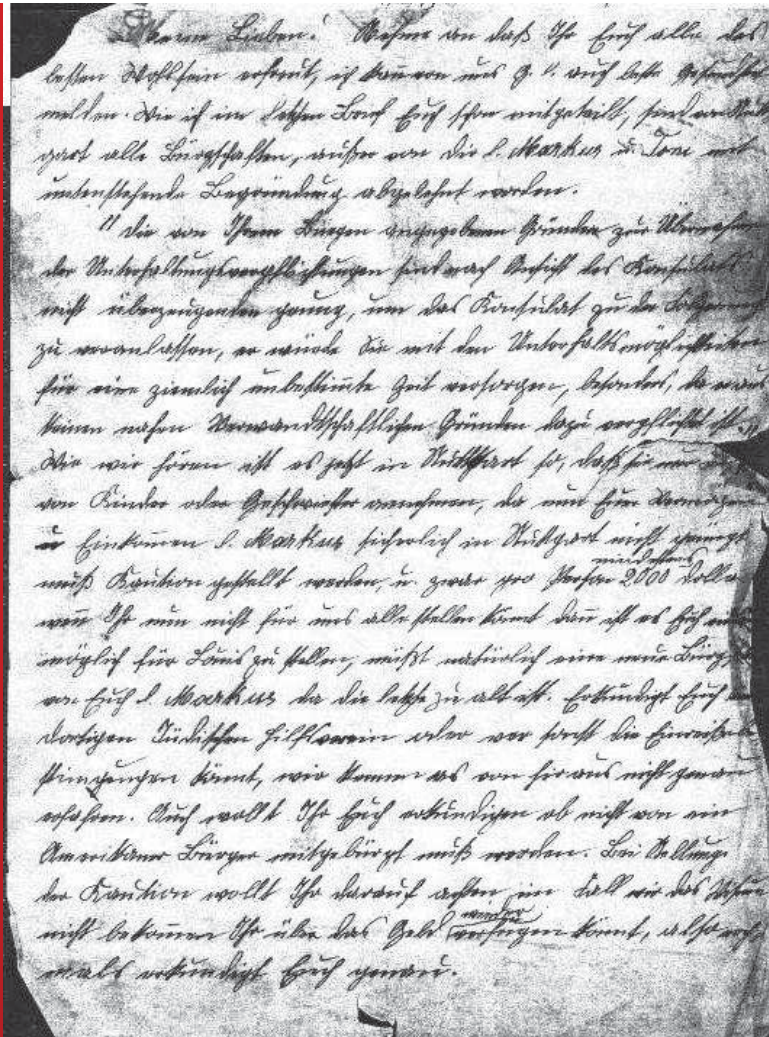 Meine Lieben! Nehme an daß Ihr Euch alle des
besten Wohlseins erfreut, ich kann von uns G. l. auch beste Gesundheit
melden. Wie ich im letzten Brief Euch schon mitgeteilt, sind von Stutt
gart alle Bürgschaften, außer von die l. Markus u. Toni mit
untenstehende Begründung abgelehnt worden.
"Die von Ihrem Bürgen angegebenen Gründen zur Übernahme
der Unterhaltungsverpflichtungen sind nach Ansicht des Konsulats
nicht überzeugenden genug, um das Konsulat zu der Folgerung
zu veranlassen, er würde Sie mit den Unterhaltsmöglichkeiten
für eine ziemlich unbestimmte Zeit versorgen, besonders, da er aus
keinen nahen Verwandtschaftlichen Gründen dazu verpflichtet ist."
Wie wir hören ist es jetzt in Stuttgart so, daß sie nur
von Kinder oder Geschwister annehmen, da nun Euer Vermögen
u Einkommen l. Markus sicherlich in Stuttgart nicht genügt
muß Kaution gestellt werden, u. zwar pro Person mindestens 2000 Dollar
wenn Ihr nun nicht für uns alle stellen könnt dann ist es Euch
möglich für Louis zu stellen, müßt natürlich eine neue Bürg
von Euch l. Markus da die letzte zu alt ist. Erkundigt Euch
dortigen Jüdischen Hilfsverein oder wer sonst die Einreisebe
stimmungen kennt, wir können es von hier aus nicht genau
erfahren. Auch wollt Ihr Euch erkundigen ob nicht von ein
Amerikaner Bürger mitgebürgt muß werden. Bei Stellung
der Kaution wollt Ihr darauf achten im Fall wir das Visum
nicht bekommen Ihr über das Geld wieder verfügen könnt, also noch
mals erkundigt Euch genau.